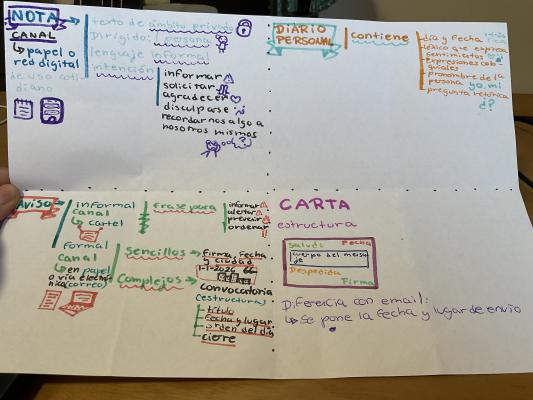 NOTA
CANAL
↳ papel o
red digital
de uso coti-
diano
texto de ámbito privado
Dirigido: 1 persona
lenguaje informal
intención
informar
solicitar
agradecer
disculparse
recordarnos algo a
nosotros mismos
DIARIO
PERSONAL
contiene
día y Fecha
1-1-26
léxico que expresa
sentimientos
expresiones colo-
quiales
pronombre de 1a
persona yo, mí
pregunta retórica
¿?
AVISO
informal
canal
↳ cartel
formal
canal
↳ en papel
o vía electró-
nica (correo)
frase para
informar
alertar
prevenir
ordenar
Sencillos
Firma, Fecha
y ciudad
1-1-2026
Complejos
convocatoria
(estructura)
título
Fecha y lugar
orden del día
cierre
CARTA
estructura
Saludo Fecha
cuerpo del mensa
je
Despedida
Firma
Diferencia con email:
↳ Se pone la fecha y lugar de envio